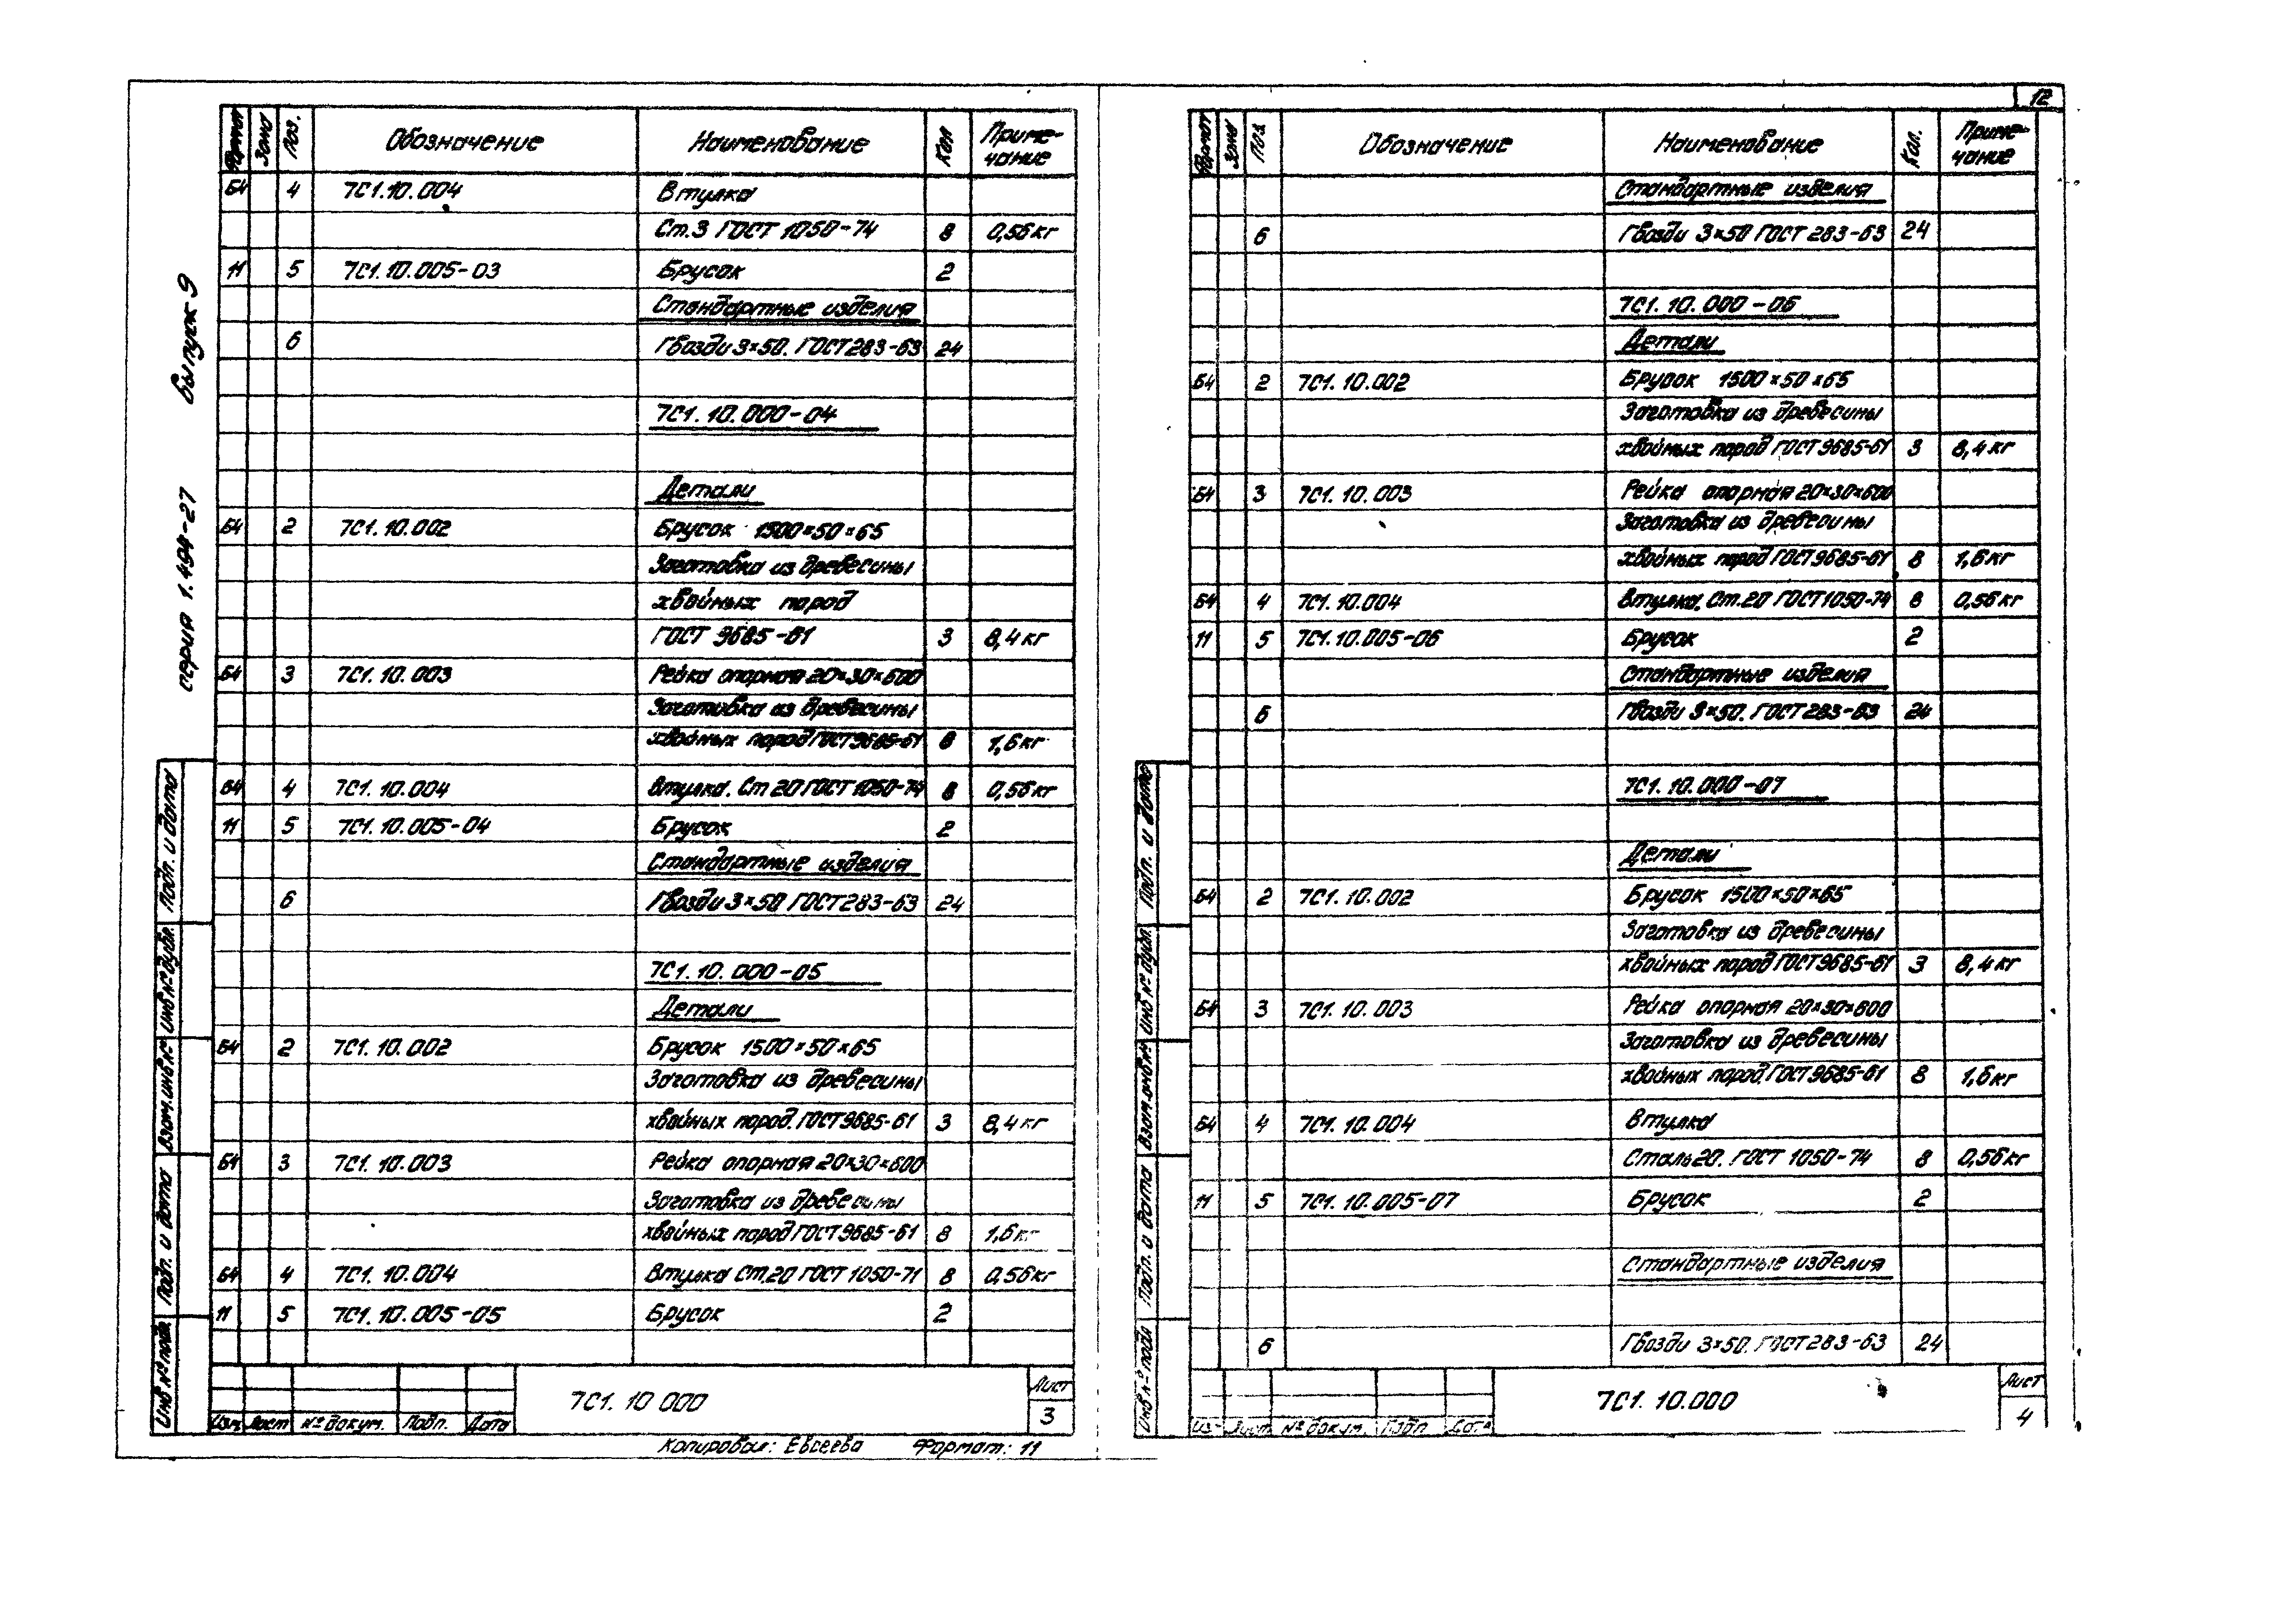 12
серия 1.494-27 выпуск 9
Формат Зона Поз. Обозначение Наименование Кол Приме-
чание
Б4 4 7С1.10.004 Втулка
Ст.3 ГОСТ 1050-74 8 0,56кг
11 5 7С1.10.005-03 Брусок 2
Стандартные изделия
6 Гвозди 3×50. ГОСТ 283-63 24
7С1.10.000-04
Детали
Б4 2 7С1.10.002 Брусок 1500×50×65
Заготовка из древесины
хвойных пород
ГОСТ 9685-61 3 8,4 кг
Б4 3 7С1.10.003 Рейка опорная 20×30×600
Заготовка из древесины
хвойных пород ГОСТ 9685-61 8 1,6кг
Б4 4 7С1.10.004 Втулка. Ст 20 ГОСТ 1050-74 8 0,56кг
11 5 7С1.10.005-04 Брусок 2
Стандартные изделия
6 Гвозди 3×50 ГОСТ 283-63 24
7С1.10.000-05
Детали
Б4 2 7С1.10.002 Брусок 1500×50×65
Заготовка из древесины
хвойных пород. ГОСТ 9685-61 3 8,4 кг
Б4 3 7С1.10.003 Рейка опорная 20×30×600
Заготовка из древесины
хвойных пород ГОСТ 9685-61 8 1,6кг
Б4 4 7С1.10.004 Втулка Ст.20 ГОСТ 1050-71 8 0,56кг
11 5 7С1.10.005-05 Брусок 2
Инв № подл. Подп. и дата Взам.инв.№ Инв № дубл. Подп. и дата
Изм Лист № докум. Подп. Дата
7С1.10 000
Лист
3
Копировал: Евсеева Формат: 11
Формат Зона Поз Обозначение Наименование Кол. Приме-
чание
Стандартные изделия
6 Гвозди 3×50 ГОСТ 283-63 24
7С1.10.000-06
Детали
Б4 2 7С1.10.002 Брусок 1500×50×65
Заготовка из древесины
хвойных пород ГОСТ 9685-61 3 8,4 кг
Б4 3 7С1.10.003 Рейка опорная 20×30×600
Заготовка из древесины
хвойных пород ГОСТ 9685-61 8 1,6кг
Б4 4 7С1.10.004 Втулка. Ст.20 ГОСТ 1050-74 8 0,56кг
11 5 7С1.10.005-06 Брусок 2
Стандартные изделия
6 Гвозди 3×50. ГОСТ 283-63 24
7С1.10.000-07
Детали
Б4 2 7С1.10.002 Брусок 1500×50×65
Заготовка из древесины
хвойных пород ГОСТ 9685-61 3 8,4 кг
Б4 3 7С1.10.003 Рейка опорная 20×30×600
Заготовка из древесины
хвойных пород. ГОСТ 9685-61 8 1,6кг
Б4 4 7С1.10.004 Втулка
Сталь 20. ГОСТ 1050-74 8 0,56кг
11 5 7С1.10.005-07 Брусок 2
Стандартные изделия
6 Гвозди 3×50. ГОСТ 283-63 24
Инв № подл Подп. и дата Взам.инв.№ Инв № дубл. Подп. и дата
Из Лист № докум. Подп. Дата
7С1.10.000
Лист
4